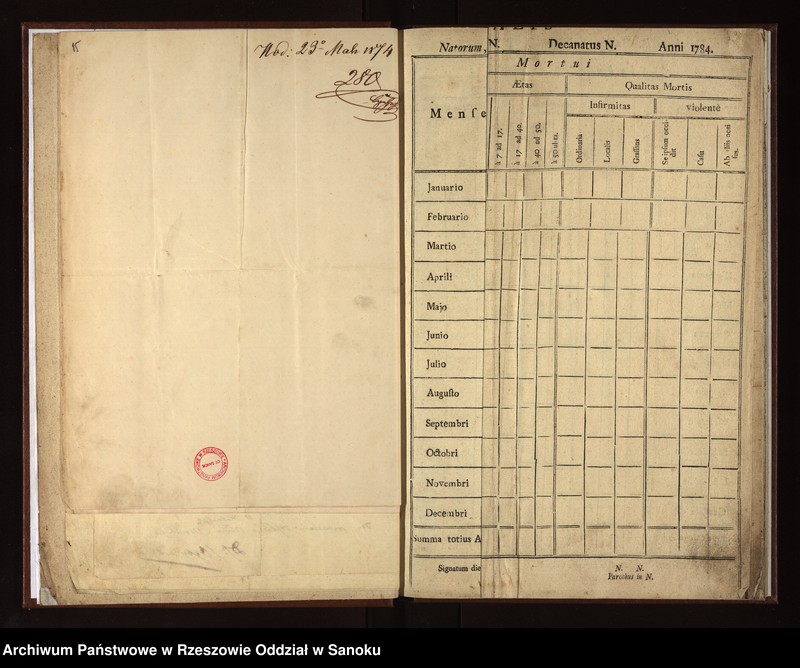 15
280
Natorum, N. Decanatus N. Anni 1784.
Mortui
Ætas Qualitas Mortis
Menſe Infirmitas violentè
à 7 ad 17.
à 17 ad 40.
à 40 ad 50.
Ordinaria
Localis
Graſſans
Se ipſum occi-
dit
Caſu
Januario
Februario
Martio
Aprili
Majo
Junio
Julio
Auguſto
Septembri
Octobri
Novembri
Decembri
Summa totius A
Signatum die N. N.
Parochus in N.
Archiwum Państwowe w Rzeszowie Oddział w Sanoku